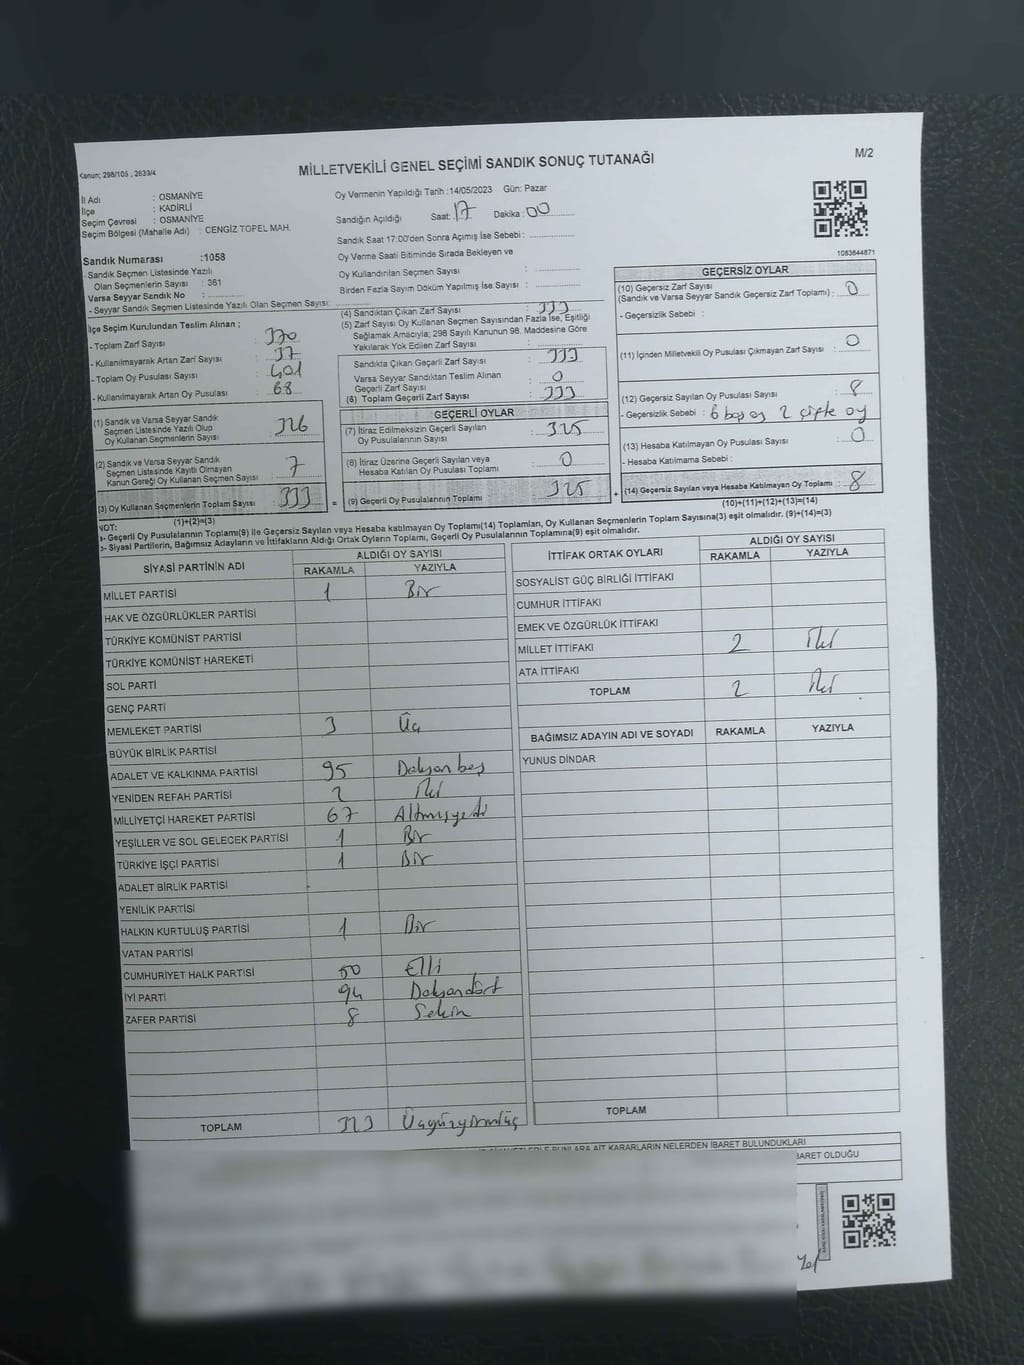 Kanun; 298/105 , 2839/4
MİLLETVEKİLİ GENEL SEÇİMİ SANDIK SONUÇ TUTANAĞI
M/2
İl Adı : OSMANİYE
İlçe : KADİRLİ
Seçim Çevresi : OSMANİYE
Seçim Bölgesi (Mahalle Adı) : CENGİZ TOPEL MAH.
Oy Vermenin Yapıldığı Tarih : 14/05/2023 Gün: Pazar
Sandığın Açıldığı Saat: 17 Dakika : 00
Sandık Saat 17:00'den Sonra Açımış İse Sebebi :
Oy Verme Saati Bitiminde Sırada Bekleyen ve
Oy Kullandırılan Seçmen Sayısı :
Birden Fazla Sayım Döküm Yapılmış İse Sayısı :
Sandık Numarası :1058
- Sandık Seçmen Listesinde Yazılı
Olan Seçmenlerin Sayısı : 361
Varsa Seyyar Sandık No :
- Seyyar Sandık Seçmen Listesinde Yazılı Olan Seçmen Sayısı:
İlçe Seçim Kurulundan Teslim Alınan ;
- Toplam Zarf Sayısı : 370
- Kullanılmayarak Artan Zarf Sayısı : 37
- Toplam Oy Pusulası Sayısı : 401
- Kullanılmayarak Artan Oy Pusulası : 68
(1) Sandık ve Varsa Seyyar Sandık
Seçmen Listesinde Yazılı Olup
Oy Kullanan Seçmenlerin Sayısı : 326
(2) Sandık ve Varsa Seyyar Sandık
Seçmen Listesinde Kayıtlı Olmayan
Kanun Gereği Oy Kullanan Seçmen Sayısı : 7
(3) Oy Kullanan Seçmenlerin Toplam Sayısı : 333
(1)+(2)=(3)
(4) Sandıktan Çıkan Zarf Sayısı : 333
(5) Zarf Sayısı Oy Kullanan Seçmen Sayısından Fazla İse, Eşitliği
Sağlamak Amacıyla; 298 Sayılı Kanunun 98. Maddesine Göre
Yakılarak Yok Edilen Zarf Sayısı :
Sandıkta Çıkan Geçerli Zarf Sayısı : 333
Varsa Seyyar Sandıktan Teslim Alınan
Geçerli Zarf Sayısı : 0
(6) Toplam Geçerli Zarf Sayısı : 333
GEÇERLİ OYLAR
(7) İtiraz Edilmeksizin Geçerli Sayılan
Oy Pusulalarının Sayısı : 325
(8) İtiraz Üzerine Geçerli Sayılan veya
Hesaba Katılan Oy Pusulası Toplamı : 0
= (9) Geçerli Oy Pusulalarının Toplamı : 325 +
1083644871
GEÇERSİZ OYLAR
(10) Geçersiz Zarf Sayısı
(Sandık ve Varsa Seyyar Sandık Geçersiz Zarf Toplamı) : 0
- Geçersizlik Sebebi :
(11) İçinden Milletvekili Oy Pusulası Çıkmayan Zarf Sayısı : 0
(12) Geçersiz Sayılan Oy Pusulası Sayısı : 8
- Geçersizlik Sebebi : 6 boş oy 2 çifte oy
(13) Hesaba Katılmayan Oy Pusulası Sayısı : 0
- Hesaba Katılmama Sebebi :
(14) Geçersiz Sayılan veya Hesaba Katılmayan Oy Toplamı : 8
(10)+(11)+(12)+(13)=(14)
NOT:
- Geçerli Oy Pusulalarının Toplamı(9) ile Geçersiz Sayılan veya Hesaba katılmayan Oy Toplamı(14) Toplamları, Oy Kullanan Seçmenlerin Toplam Sayısına(3) eşit olmalıdır. (9)+(14)=(3)
- Siyasi Partilerin, Bağımsız Adayların ve İttifakların Aldığı Ortak Oyların Toplamı, Geçerli Oy Pusulalarının Toplamına(9) eşit olmalıdır.
SİYASİ PARTİNİN ADI ALDIĞI OY SAYISI
RAKAMLA YAZIYLA
MİLLET PARTİSİ 1 Bir
HAK VE ÖZGÜRLÜKLER PARTİSİ
TÜRKİYE KOMÜNİST PARTİSİ
TÜRKİYE KOMÜNİST HAREKETİ
SOL PARTİ
GENÇ PARTİ
MEMLEKET PARTİSİ 3 Üç
BÜYÜK BİRLİK PARTİSİ
ADALET VE KALKINMA PARTİSİ 95 Doksanbeş
YENİDEN REFAH PARTİSİ 2 İki
MİLLİYETÇİ HAREKET PARTİSİ 67 Altmışyedi
YEŞİLLER VE SOL GELECEK PARTİSİ 1 Bir
TÜRKİYE İŞÇİ PARTİSİ 1 Bir
ADALET BİRLİK PARTİSİ
YENİLİK PARTİSİ
HALKIN KURTULUŞ PARTİSİ 1 Bir
VATAN PARTİSİ
CUMHURİYET HALK PARTİSİ 50 Elli
İYİ PARTİ 94 Doksandört
ZAFER PARTİSİ 8 Sekiz
TOPLAM 323 Üçyüzyirmiüç
İTTİFAK ORTAK OYLARI ALDIĞI OY SAYISI
RAKAMLA YAZIYLA
SOSYALİST GÜÇ BİRLİĞİ İTTİFAKI
CUMHUR İTTİFAKI
EMEK VE ÖZGÜRLÜK İTTİFAKI
MİLLET İTTİFAKI 2 İki
ATA İTTİFAKI
TOPLAM 2 İki
BAĞIMSIZ ADAYIN ADI VE SOYADI RAKAMLA YAZIYLA
YUNUS DİNDAR
TOPLAM
BUNLARA AİT KARARLARIN NELERDEN İBARET BULUNDUKLARI
İBARET OLDUĞU